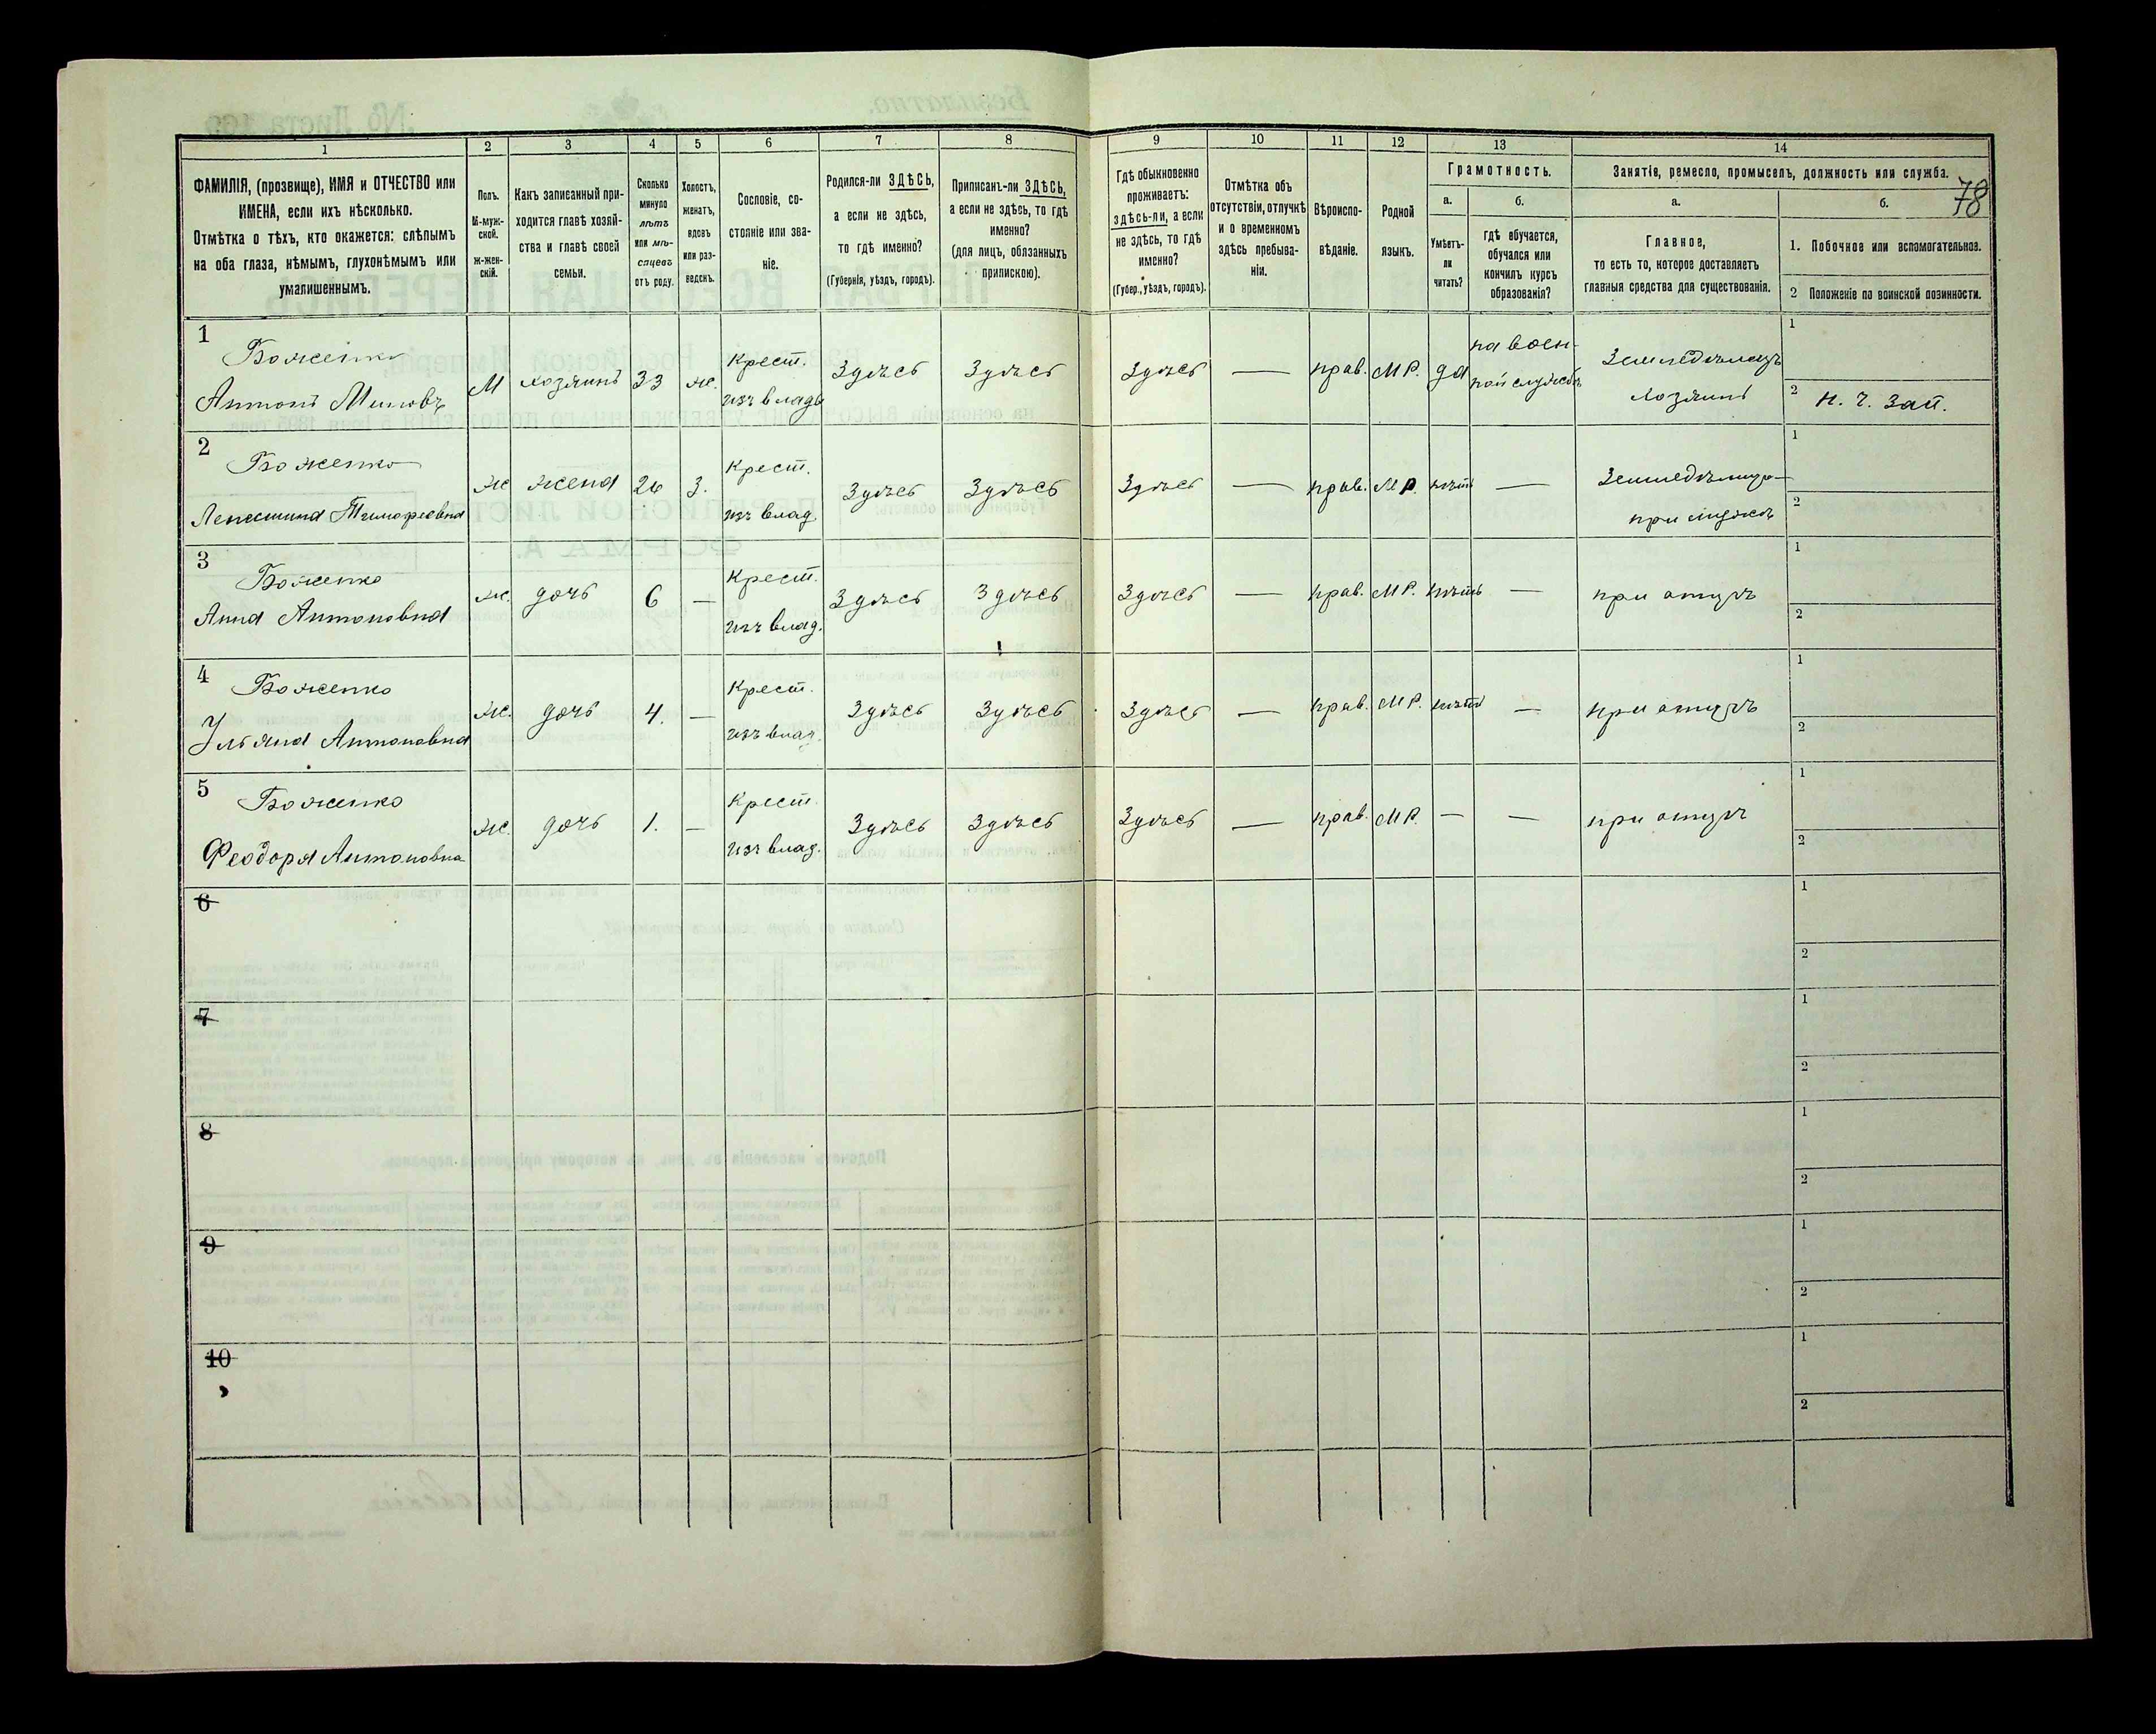 78
1 2 3 4 5 6 7 8 9 10 11 12 13 14
ФАМИЛІЯ, (прозвище), ИМЯ и ОТЧЕСТВО или
ИМЕНА, если ихъ нѣсколько.
Отмѣтка о тѣхъ, кто окажется: слѣпымъ
на оба глаза, нѣмымъ, глухонѣмымъ или
умалишеннымъ.
Полъ.
М-муж-
ской.
Ж-жен-
скій.
Какъ записанный при-
ходится главѣ хозяй-
ства и главѣ своей
семьи.
Сколько
минуло
лѣтъ
или мѣ-
сяцевъ
отъ роду.
Холостъ,
женатъ,
вдовъ
или раз-
веденъ.
Сословіе, со-
стояніе или зва-
ніе.
Родился-ли ЗДѢСЬ,
а если не здѣсь,
то гдѣ именно?
(Губернія, уѣздъ, городъ).
Приписанъ-ли ЗДѢСЬ,
а если не здѣсь, то гдѣ
именно?
(для лицъ, обязанныхъ
припискою).
Гдѣ обыкновенно
проживаетъ:
здѣсь-ли, а если
не здѣсь, то гдѣ
именно?
(Губер., уѣздъ, городъ).
Отмѣтка объ
отсутствіи, отлучкѣ
и о временномъ
здѣсь пребыва-
ніи.
Вѣроиспо-
вѣданіе.
Родной
языкъ.
Грамотность.
а.
Умѣетъ-
ли
читать?
б.
гдѣ обучается,
обучался или
кончилъ курсъ
образованія?
Занятіе, ремесло, промыселъ, должность или служба.
а.
Главное,
то есть то, которое доставляетъ
главныя средства для существованія.
б.
1. Побочное или вспомогательное.
2 Положеніе по воинской повинности.
1
Боженко
Антонъ Миновъ
М хозяинъ 33 ж.
Крест.
изъ влад
Здѣсь Здѣсь Здѣсь — прав. М Р. да
на воен-
ной службѣ
Земледѣлецъ
хозяинъ
1
2 Н. Ч. Зап.
2
Боженко
Тимофеевна
ж жена 26 З.
Крест.
изъ влад.
Здѣсь Здѣсь Здѣсь — прав. М Р. нѣтъ —
при мужѣ
1
2
3
Боженко
Анна Антоновна
ж. дочь 6 —
Крест.
изъ влад.
Здѣсь Здѣсь Здѣсь — прав. М Р. нѣтъ — при отцѣ
1
2
4
Боженко
Ульяна Антоновна
ж. дочь 4. —
Крест.
изъ влад.
Здѣсь Здѣсь Здѣсь — прав. М Р. нѣтъ — при отцѣ
1
2
5
Боженко
Феодора Антоновна
ж. дочь 1. —
Крест.
изъ влад.
Здѣсь Здѣсь Здѣсь — прав. М Р. — — при отцѣ
1
2
6
1
2
7
1
2
8
1
2
9
1
2
10
1
2